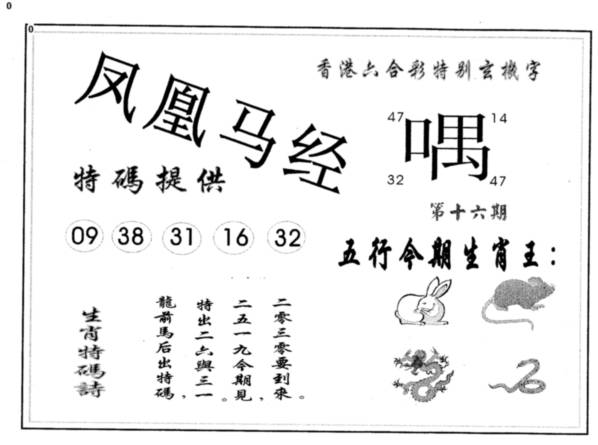 0
0
凤凰马经
香港六合彩特别玄機字
47 14
喁
32 47
特碼提供
第十六期
09 38 31 16 32
五行今期生肖王：
生肖特碼詩
二零三零要到來。
二五一九今期見，
特出二六與三一。
龍前馬后出特碼，